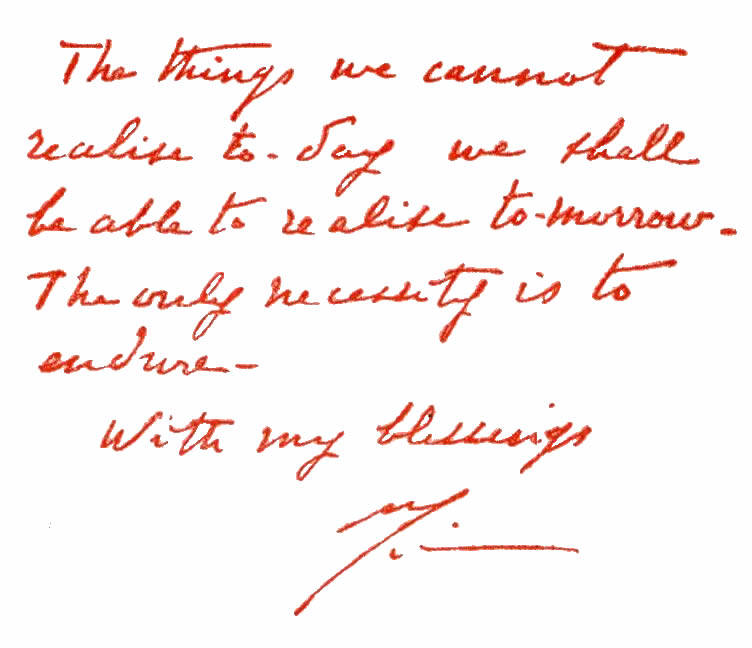 The things we cannot
realise to-day we shall
be able to realise to-morrow.
The only necessity is to
endure—
With my blessings